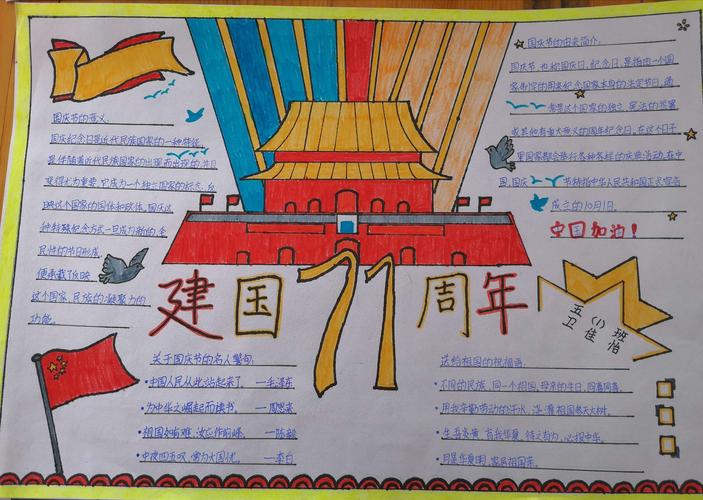 国庆节的意义:
国庆纪念日是近代民族国家的一种特征,
是伴随着近代民族国家的出现而出现的,并且
变得尤为重要。它成为一个独立国家的标志,反
映这个国家的国体和政体。国庆这
种特殊纪念方式一旦成为新的、全
民性的节日形式,
便承载了反映
这个国家、民族的凝聚力的
功能。
国庆节的由来简介:
国庆节,也称国庆日、纪念日,是指由一个国
家制定的用来纪念国家本身的法定节日。通
常是这个国家的独立、宪法的签署
或其他有重大意义的周年纪念日。在这个日子
里国家都会举行各种各样的庆典活动。在中
国,国庆节特指中华人民共和国正式宣告
成立的10月1日。
中国加油!
建国71周年
五(1)班
卫佳怡
关于国庆节的名人警句:
·中国人民从此站起来了。—毛泽东
·为中华之崛起而读书。—周恩来
·祖国如有难,汝应作前锋。—陈毅
·中夜四五叹,常为大国忧。—李白
送给祖国的祝福语:
·不同的民族,同一个祖国,母亲的生日,同喜同喜。
·用我辛勤劳动的汗水,浇灌祖国参天大树。
·生吾炎黄,育我华夏,待之有为,必报中华。
·月是华夏明,家居祖国亲。